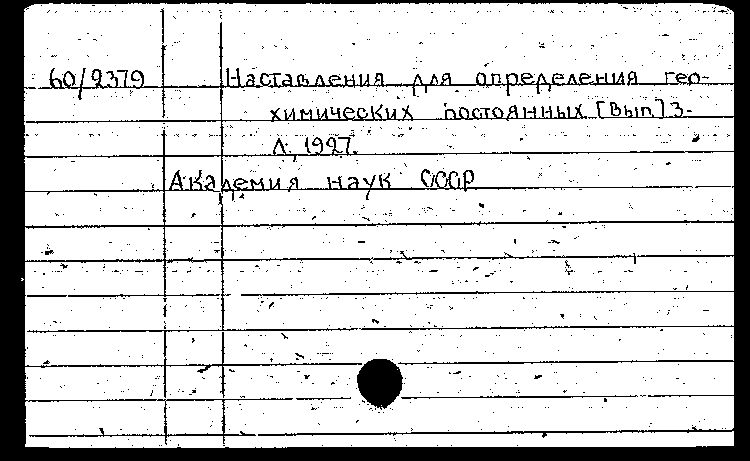 60/2379 Наставления для определения гео-
химических постоянных. [Вып.] 3-
Л., 1927.
Академия наук СССР